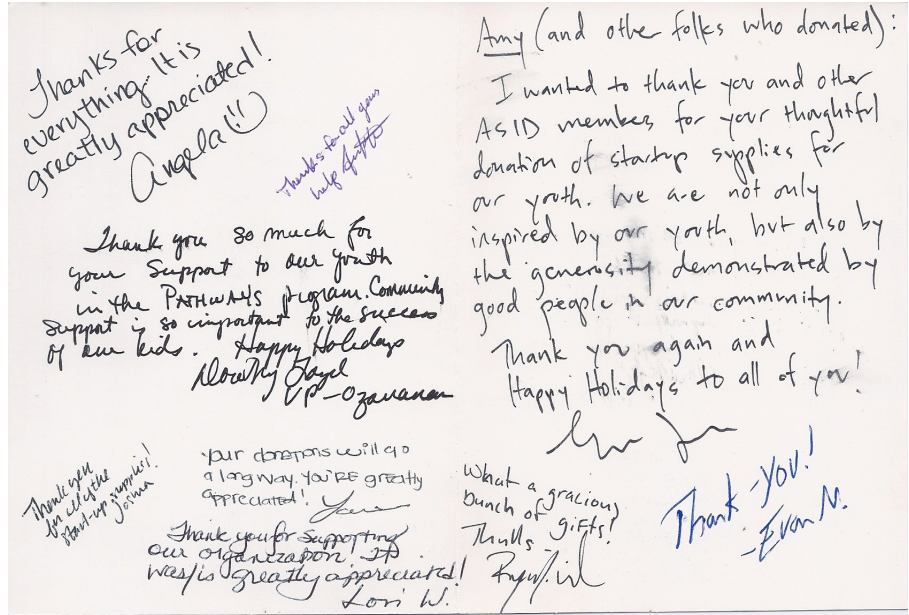 Thanks for
everything. It is
greatly appreciated!
Angela :)
Thanks for all your
help
Thank you so much for
your support to our youth
in the PATHWAYS program. Community
support is so important to the success
of our kids. Happy Holidays
Dorothy
VP-Ozanam
Thank you
for all the
start-up supplies!
your donations will go
a long way. You'RE greatly
appreciated!
Thank you for supporting
our organization. It
was/is greatly appreciated!
Lori W.
Amy (and other folks who donated):
I wanted to thank you and other
ASID members for your thoughtful
donation of startup supplies for
our youth. We are not only
inspired by our youth, but also by
the generosity demonstrated by
good people in our community.
Thank you again and
Happy Holidays to all of you!
What a gracious
bunch of gifts!
Thank-You!
-Evan N.